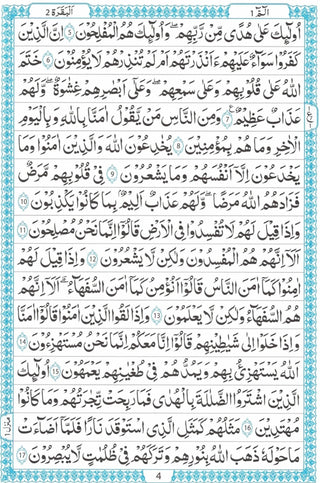 الٓمّٓ ١
اَلْبَقَرَة ٢
اُولٰٓئِكَ عَلٰی هُدًی مِّنْ رَّبِّهِمْ ۗ وَاُولٰٓئِكَ هُمُ الْمُفْلِحُوْنَ 5 اِنَّ الَّذِیْنَ
كَفَرُوْا سَوَآءٌ عَلَیْهِمْ ءَاَنْذَرْتَهُمْ اَمْ لَمْ تُنْذِرْهُمْ لَا یُؤْمِنُوْنَ 6 خَتَمَ
اللّٰهُ عَلٰی قُلُوْبِهِمْ وَعَلٰی سَمْعِهِمْ ؕ وَعَلٰٓی اَبْصَارِهِمْ غِشَاوَةٌ ؗ وَّلَهُمْ
عَذَابٌ عَظِیْمٌ 7 وَمِنَ النَّاسِ مَنْ یَّقُوْلُ اٰمَنَّا بِاللّٰهِ وَبِالْیَوْمِ
الْاٰخِرِ وَمَا هُمْ بِمُؤْمِنِیْنَ 8 یُخٰدِعُوْنَ اللّٰهَ وَالَّذِیْنَ اٰمَنُوْا وَمَا
یَخْدَعُوْنَ اِلَّاۤ اَنْفُسَهُمْ وَمَا یَشْعُرُوْنَ 9 فِیْ قُلُوْبِهِمْ مَّرَضٌ
فَزَادَهُمُ اللّٰهُ مَرَضًا ۚ وَلَهُمْ عَذَابٌ اَلِیْمٌۢ بِمَا كَانُوْا یَكْذِبُوْنَ 10
وَاِذَا قِیْلَ لَهُمْ لَا تُفْسِدُوْا فِی الْاَرْضِ قَالُوْۤا اِنَّمَا نَحْنُ مُصْلِحُوْنَ 11
اَلَاۤ اِنَّهُمْ هُمُ الْمُفْسِدُوْنَ وَلٰكِنْ لَّا یَشْعُرُوْنَ 12 وَاِذَا قِیْلَ لَهُمْ
اٰمِنُوْا كَمَاۤ اٰمَنَ النَّاسُ قَالُوْۤا اَنُؤْمِنُ كَمَاۤ اٰمَنَ السُّفَهَآءُ ؕ اَلَاۤ اِنَّهُمْ
هُمُ السُّفَهَآءُ وَلٰكِنْ لَّا یَعْلَمُوْنَ 13 وَاِذَا لَقُوا الَّذِیْنَ اٰمَنُوْا قَالُوْۤا اٰمَنَّا
وَاِذَا خَلَوْا اِلٰی شَیٰطِیْنِهِمْ قَالُوْۤا اِنَّا مَعَكُمْ اِنَّمَا نَحْنُ مُسْتَهْزِءُوْنَ 14
اَللّٰهُ یَسْتَهْزِئُ بِهِمْ وَیَمُدُّهُمْ فِیْ طُغْیَانِهِمْ یَعْمَهُوْنَ 15 اُولٰٓئِكَ
الَّذِیْنَ اشْتَرَوُا الضَّلٰلَةَ بِالْهُدٰی فَمَا رَبِحَتْ تِّجَارَتُهُمْ وَمَا كَانُوْا
مُهْتَدِیْنَ 16 مَثَلُهُمْ كَمَثَلِ الَّذِی اسْتَوْقَدَ نَارًا فَلَمَّاۤ اَضَآءَتْ
مَا حَوْلَهٗ ذَهَبَ اللّٰهُ بِنُوْرِهِمْ وَتَرَكَهُمْ فِیْ ظُلُمٰتٍ لَّا یُبْصِرُوْنَ 17
4